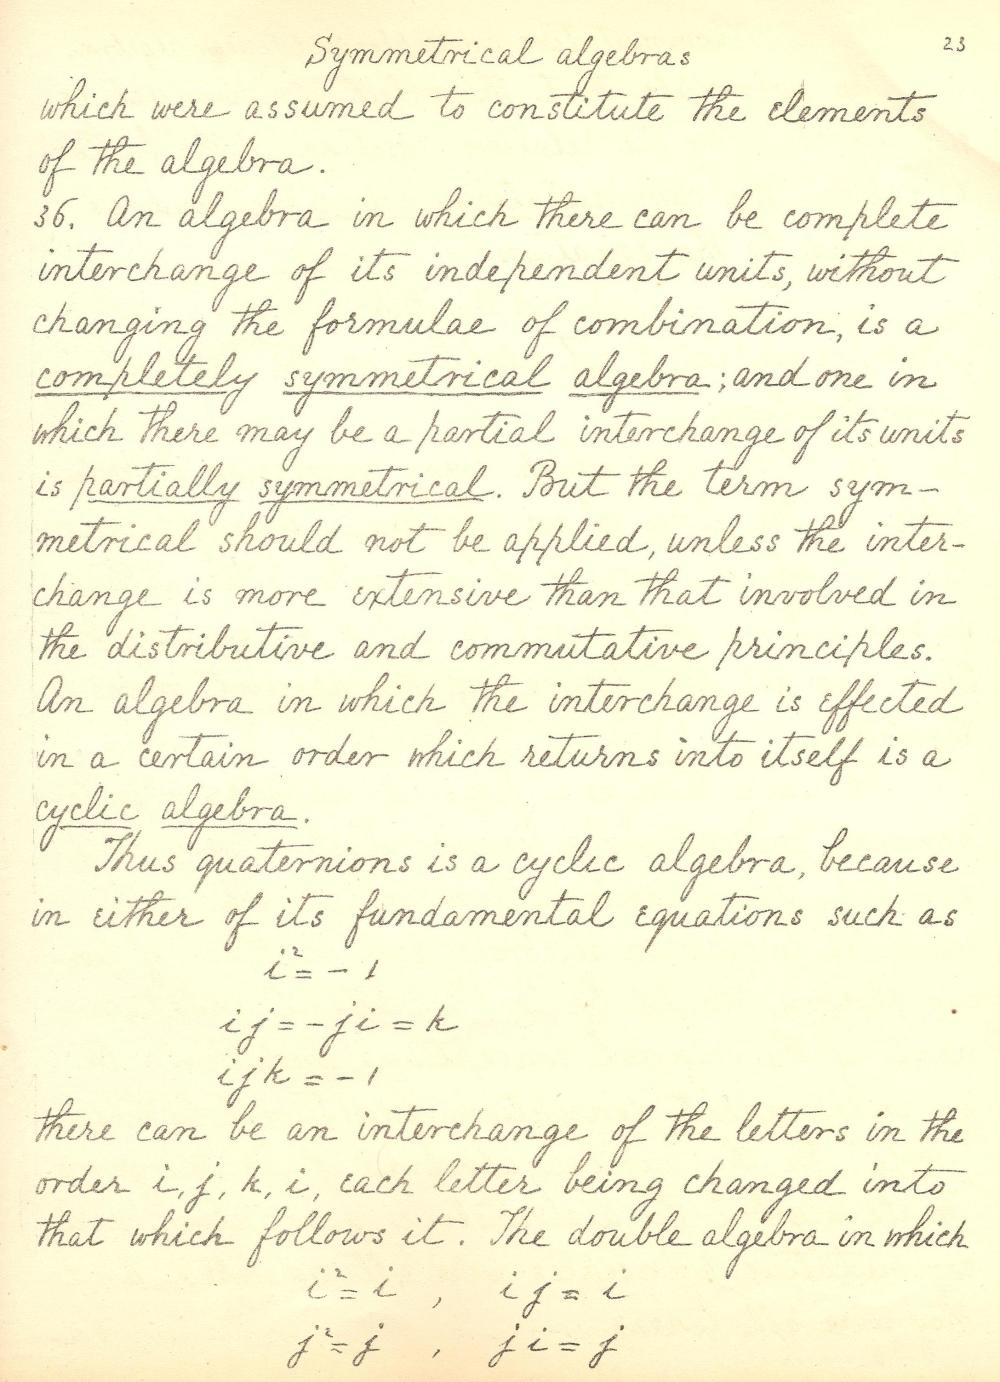 Symmetrical algebras 23
which were assumed to constitute the elements
of the algebra.
36. An algebra in which there can be complete
interchange of its independent units, without
changing the formulae of combination, is a
completely symmetrical algebra; and one in
which there may be a partial interchange of its units
is partially symmetrical. But the term sym-
metrical should not be applied, unless the inter-
change is more extensive than that involved in
the distributive and commutative principles.
An algebra in which the interchange is effected
in a certain order which returns into itself is a
cyclic algebra.
Thus quaternions is a cyclic algebra, because
in either of its fundamental equations such as
i² = - 1
ij = - ji = k
ijk = - 1
there can be an interchange of the letters in the
order i, j, k, i, each letter being changed into
that which follows it. The double algebra in which
i² = i , ij = i
j² = j , ji = j